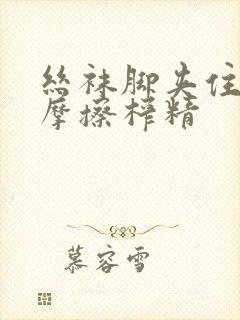 丝袜脚夹住
摩擦榨精
慕容雪